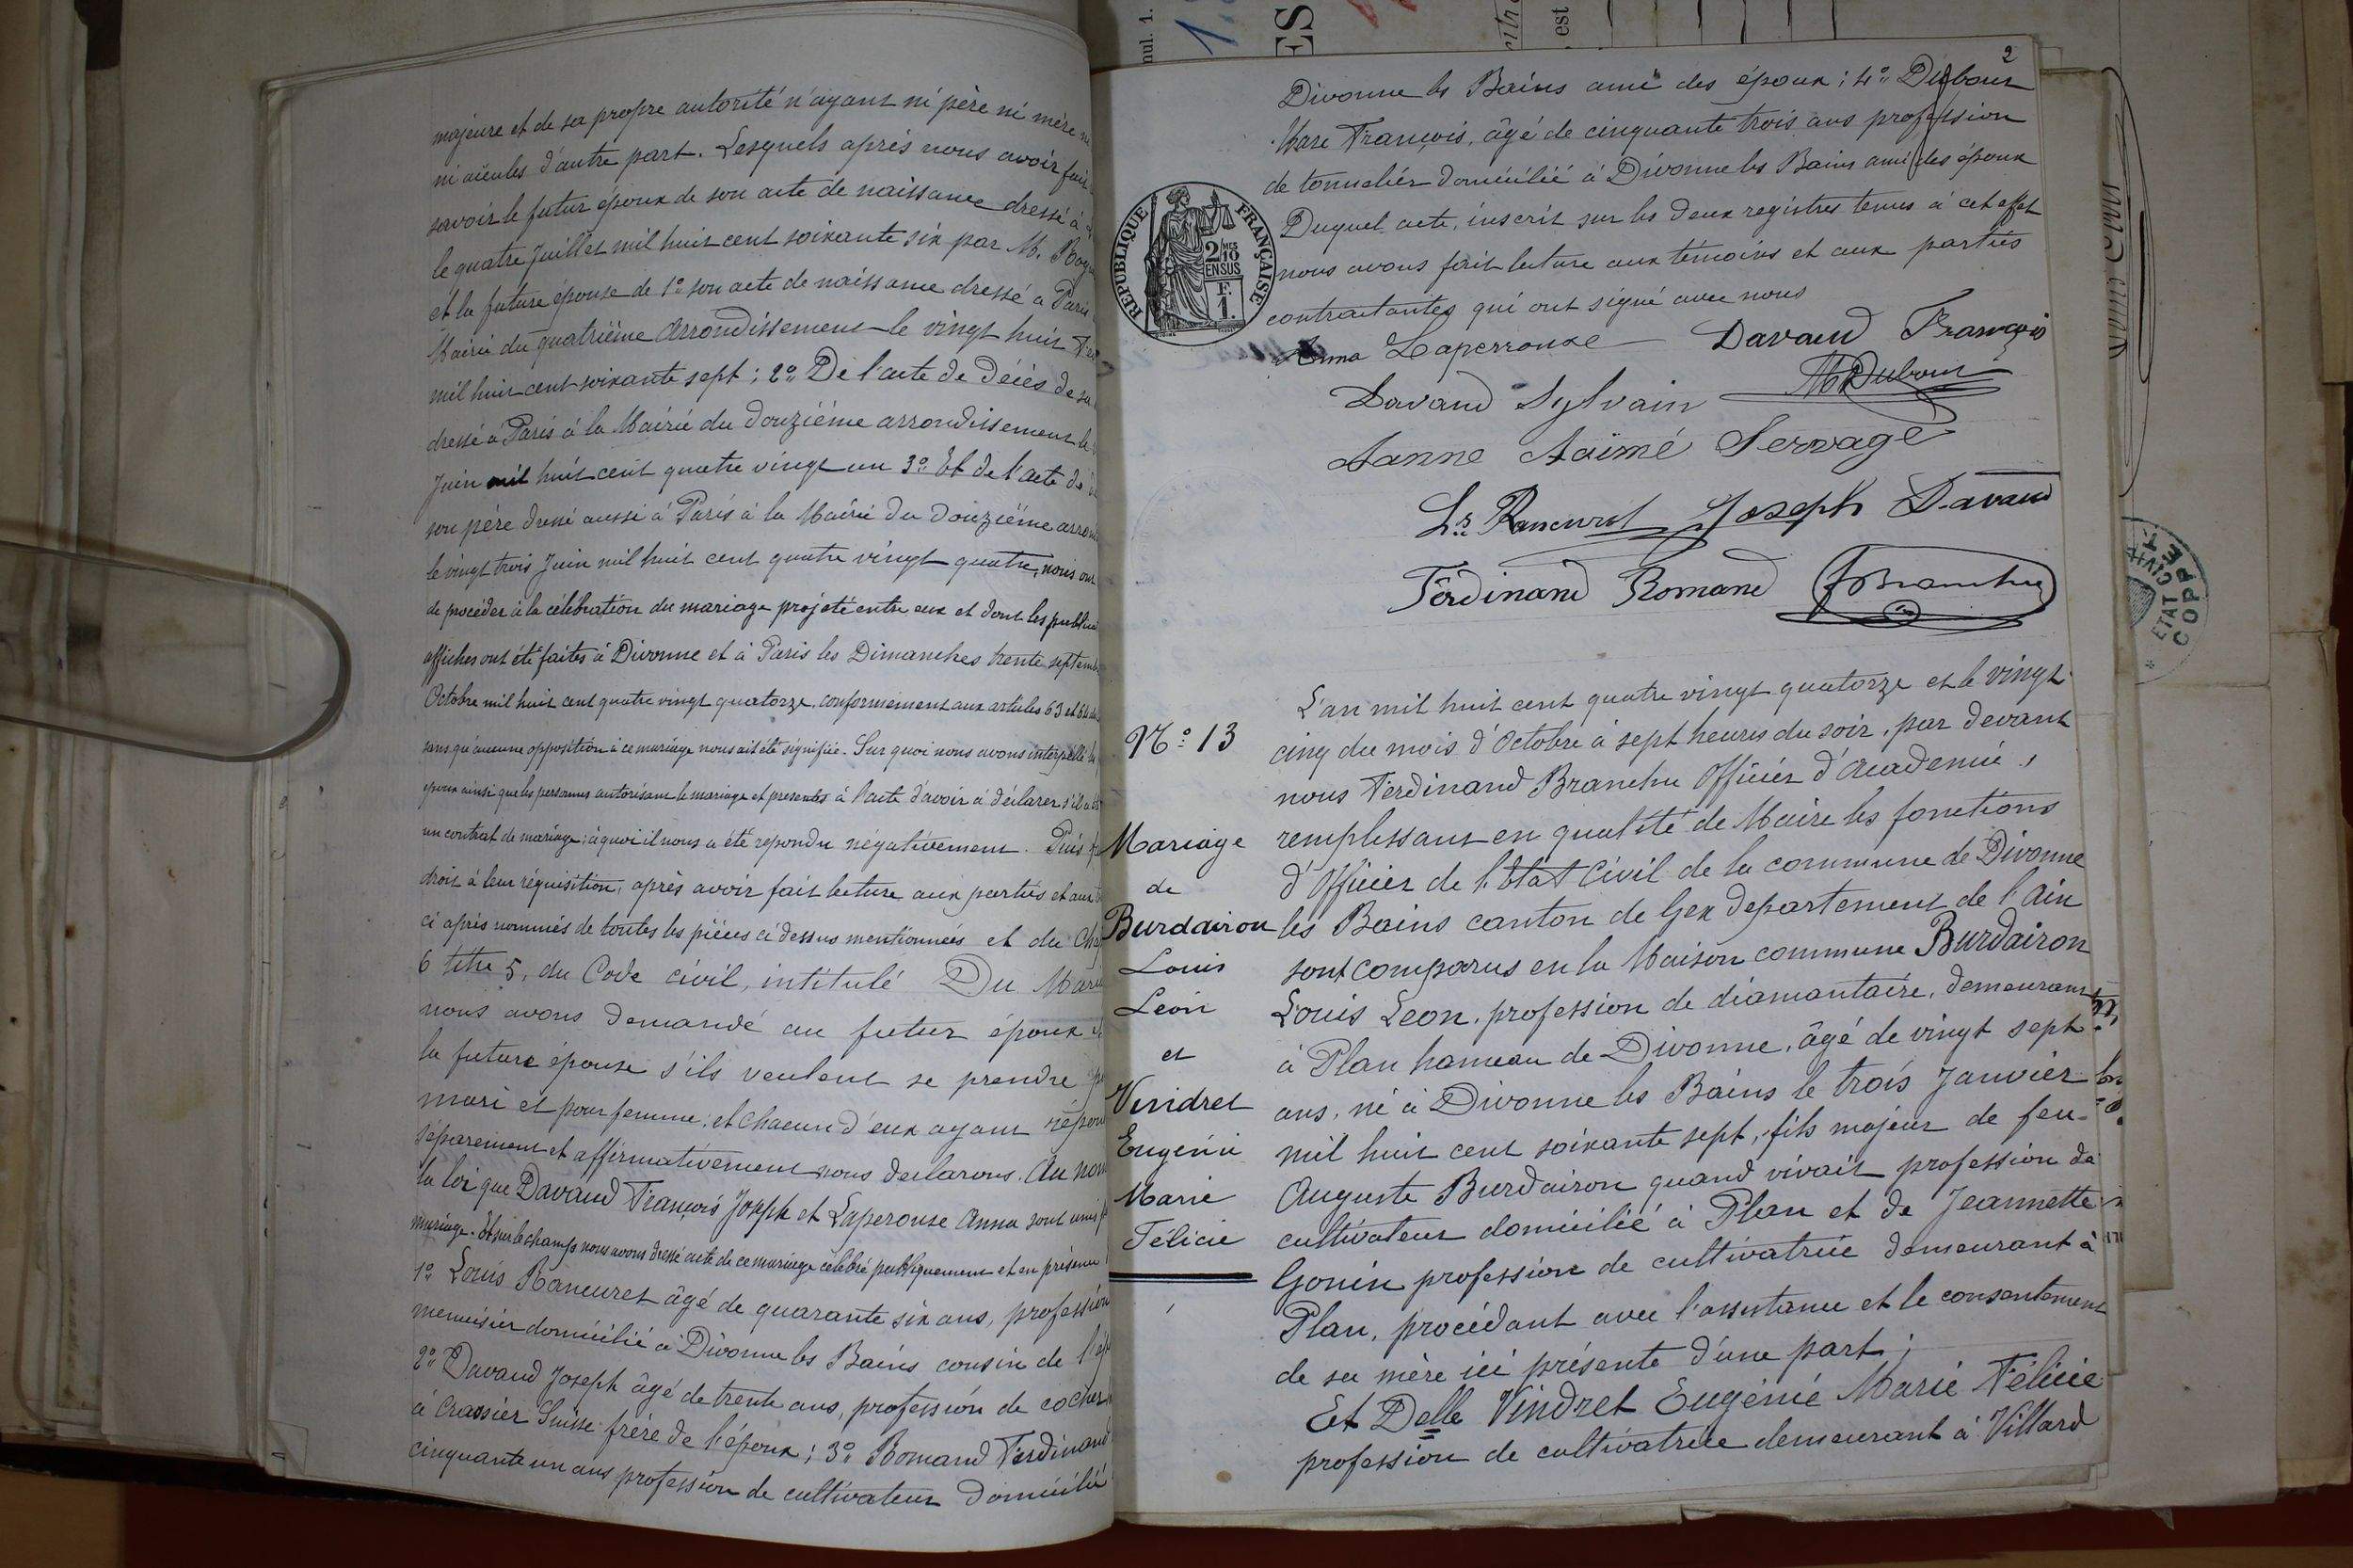 majeure et de sa propre autorité n'ayant ni père ni mère
ni aïeules d'autre part. Lesquels après nous avoir fait
savoir le futur époux de son acte de naissance dressé à
le quatre Juillet mil huit cent soixante six par M.
et la future épouse de 1º son acte de naissance dressé a Paris
Mairie du quatrième Arrondissement le vingt huit
mil huit cent soixante sept; 2º De l'acte de décès de sa
dressé à Paris à la Mairie du douzième arrondissement le
Juin mil huit cent quatre vingt un 3º Et de l'acte de
son père dressé aussi à Paris à la Mairie du douzième
le vingt trois Juin mil huit cent quatre vingt quatre, nous ont
de procéder à la célébration du mariage projeté entre eux et dont les
affiches ont été faites à Divonne et à Paris les Dimanches trente
Octobre mil huit cent quatre vingt quatorze, conformément aux articles 63 et 64
sans qu'aucune opposition à ce mariage nous ait été signifiée. Sur quoi nous avons interpellé
époux ainsi que les personnes autorisant le mariage et presentes à l'acte d'avoir à déclarer s'il a
un contrat de mariage; à quoi il nous a été répondu négativement. Puis
droit à leur réquisition, après avoir fait lecture aux parties et aux
ci après nommés de toutes les pièces ci dessus mentionnées et du
6 titre 5, du Code civil, intitulé Du
nous avons demandé au futur époux
la future épouse s'ils veulent se prendre
mari et pour femme; et chacun d'eux ayant
séparement et affirmativement nous declarons. Au nom
la loi que Davaud François Joseph et Laperouse Anna sont unis
mariage. Et sur le champs nous avons dressé acte de ce mariage célébré publiquement et en présence
1º Louis Rancurel âgé de quarante six ans, profession
menuisier domicilié à Divonne les Bains cousin de
2º Davaud Joseph âgé de trente ans, profession de cocher
à Crassier Suisse frère de l'époux; 3º Romand Ferdinand
cinquante un ans profession de cultivateur domicilié
2
Divonne les Bains ami des époux; 4º Dubour
Marc François, âgé de cinquante trois ans profession
de tonnelier domicilié à Divonne les Bains ami des époux
Duquel acte, inscrit sur les deux registres tenus à cet effet
nous avons fait lecture aux témoins et aux parties
contractantes qui ont signé avec nous
RÉPUBLIQUE FRANÇAISE
2/10 EN SUS
F. 1.
Anna Laperrouse Davaud François
Davaud Sylvain Dubour
Aaimé Servage
Ls Rancurel Joseph Davaud
Ferdinand Romand Branchu
Nº 13
Mariage
de
Burdairon
Louis
Léon
et
Vindret
Eugénie
Marie
Félicie
L'an mil huit cent quatre vingt quatorze et le vingt
cinq du mois d'Octobre à sept heures du soir, par devant
nous Ferdinand Branchu Officier d'Académie,
remplissant en qualité de Maire les fonctions
d'Officier de l'Etat Civil de la commune de Divonne
les Bains canton de Gex departement de l'Ain
sont comparus en la Maison commune Burdairon
Louis Leon, profession de diamantaire, demeurant
à Plan hameau de Divonne, âgé de vingt sept
ans, né à Divonne les Bains le trois Janvier
mil huit cent soixante sept, fils majeur de feu
Auguste Burdairon quand vivait profession de
cultivateur domicilié à Plan et de Jeannette
Gonin profession de cultivatrice demeurant à
Plan, procédant avec l'assistance et le consentement
de sa mère ici présente d'une part;
Et Delle Vindret Eugénie Marie Félicie
profession de cultivatrice demeurant à Villard
ETAT CIVIL
COPPET